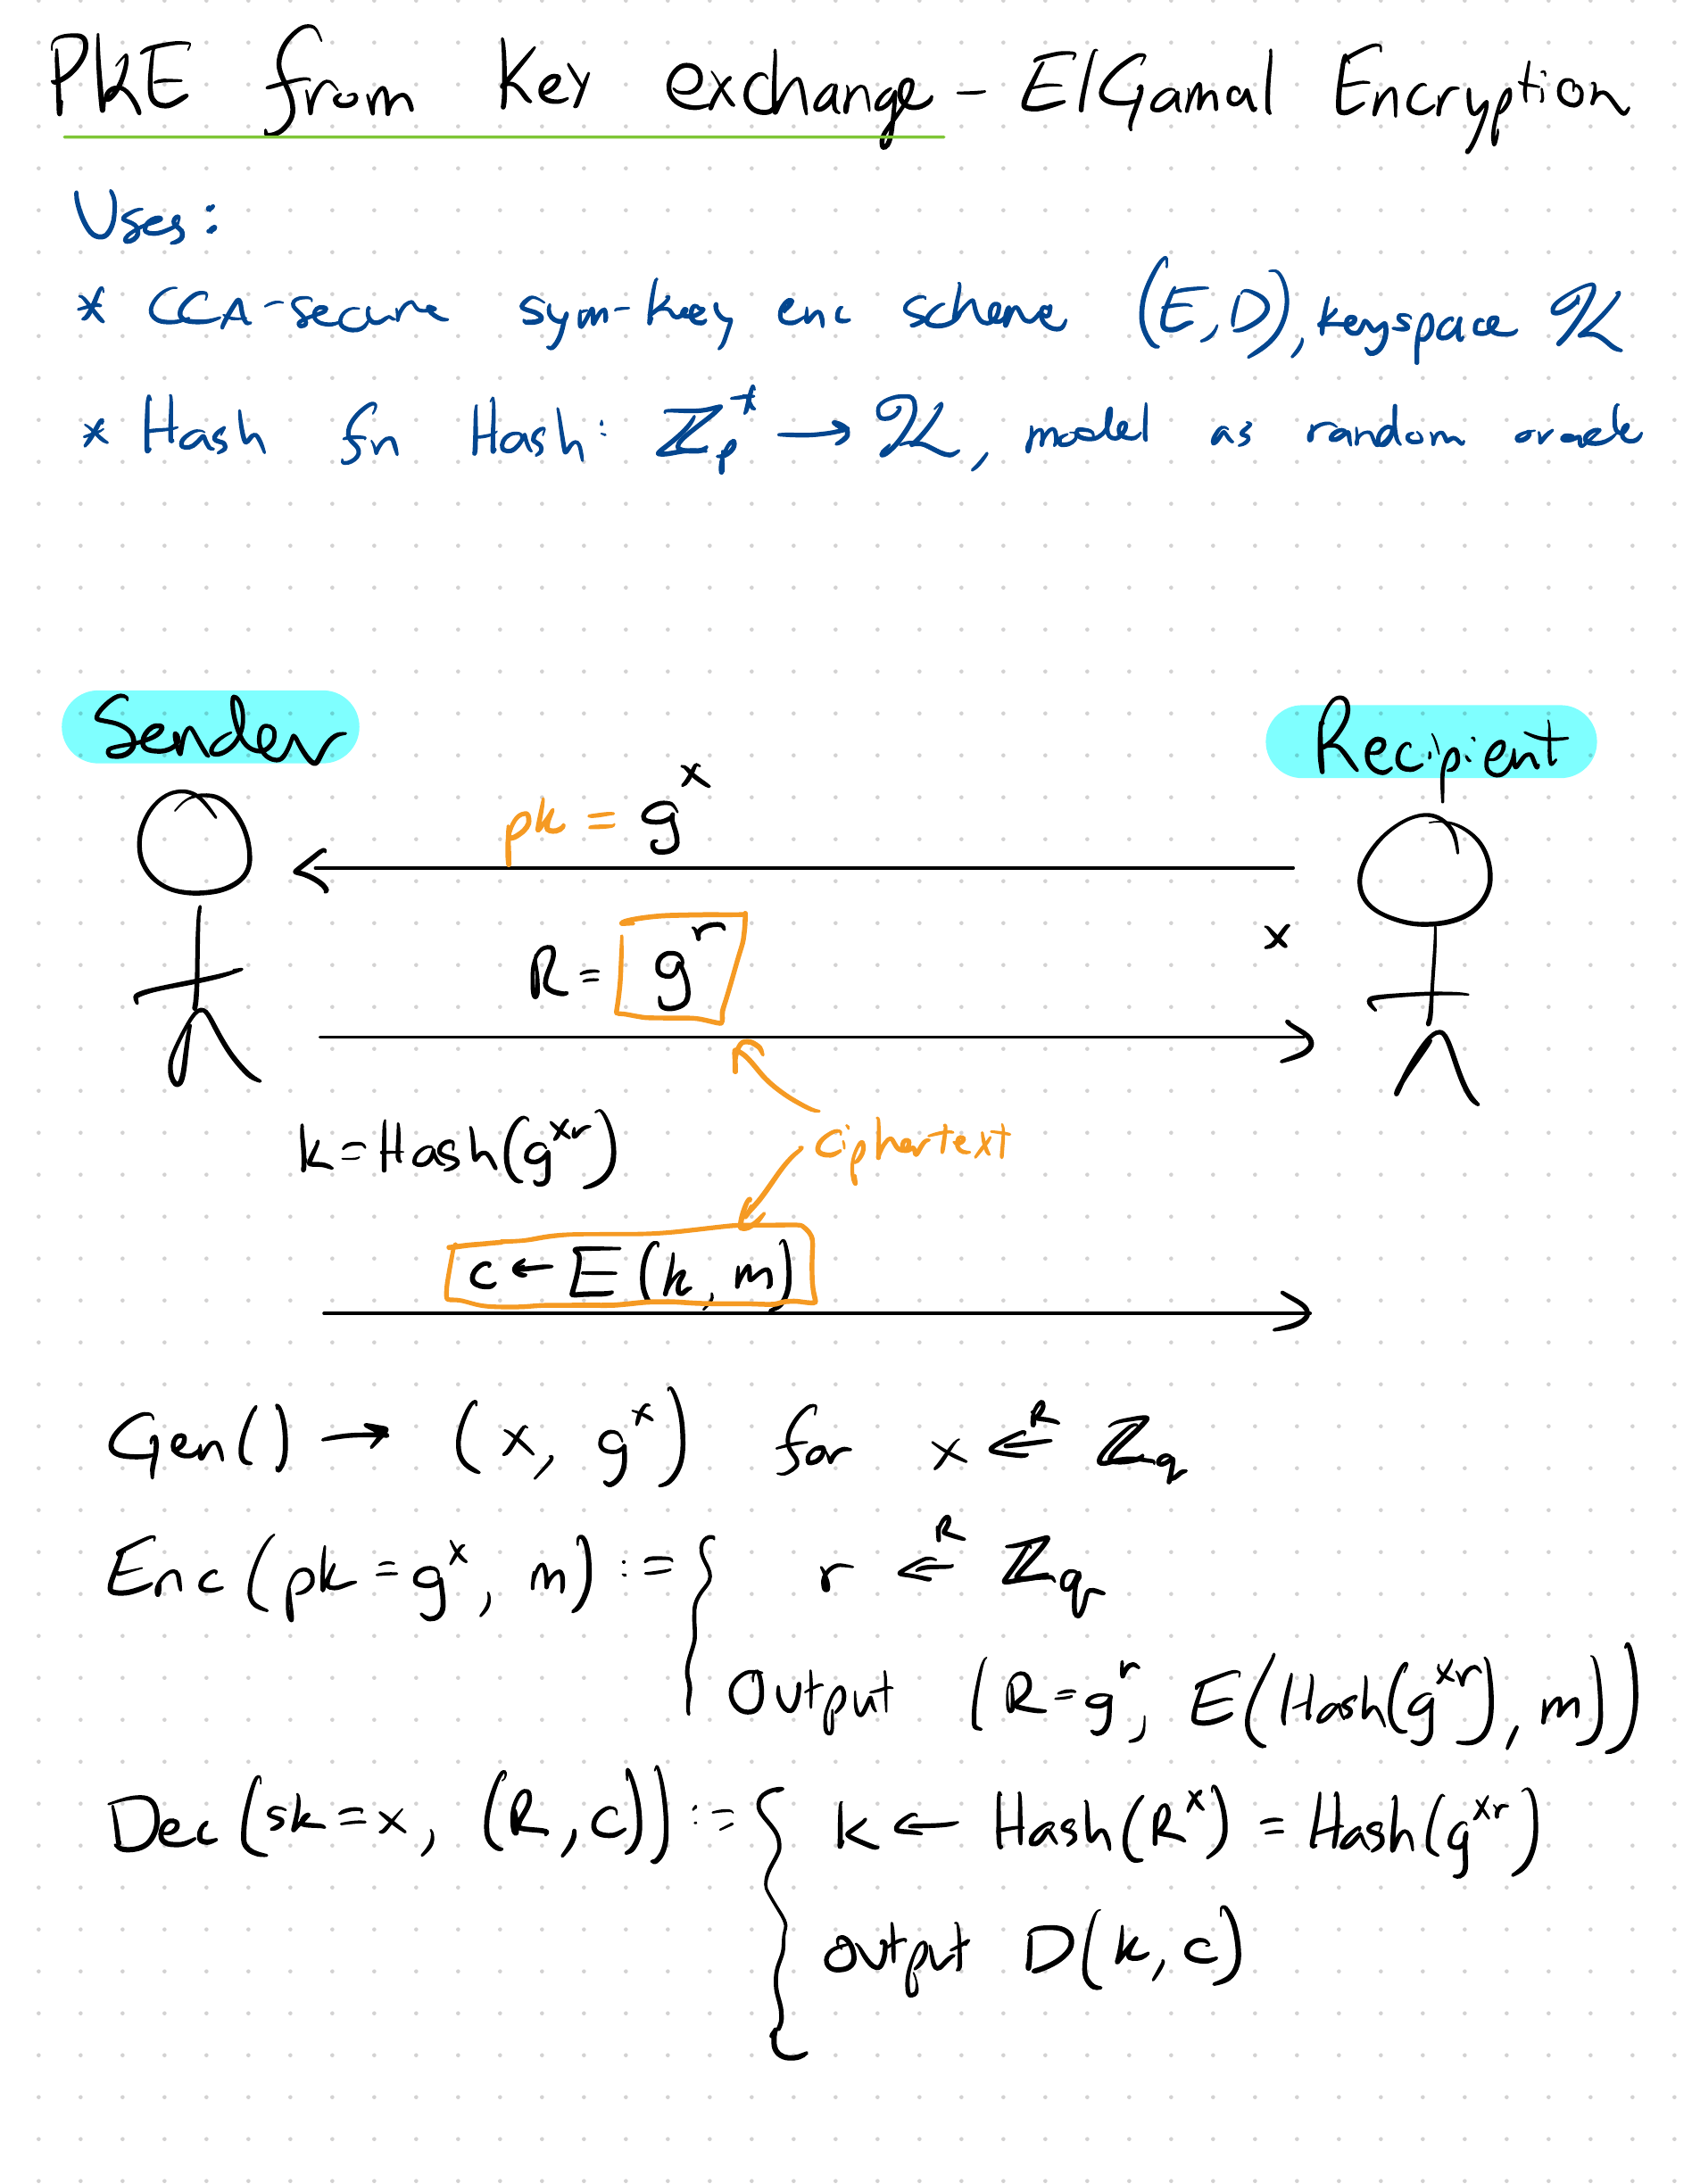 PKE from Key exchange - ElGamal Encryption
Uses:
* CCA-secure sym-key enc scheme (E,D), keyspace 𝒦
* Hash fn Hash: ℤₚ* → 𝒦, model as random oracle
Sender
Recipient
pk = gˣ
x
R = gʳ
k = Hash(gˣʳ)
ciphertext
c ← E(k, m)
Gen() → (x, gˣ) for x ←ᴿ ℤq
Enc(pk = gˣ, m) := { r ←ᴿ ℤq
Output (R = gʳ, E(Hash(gˣʳ), m))
Dec(sk = x, (R, c)) := { k ← Hash(Rˣ) = Hash(gˣʳ)
output D(k, c)